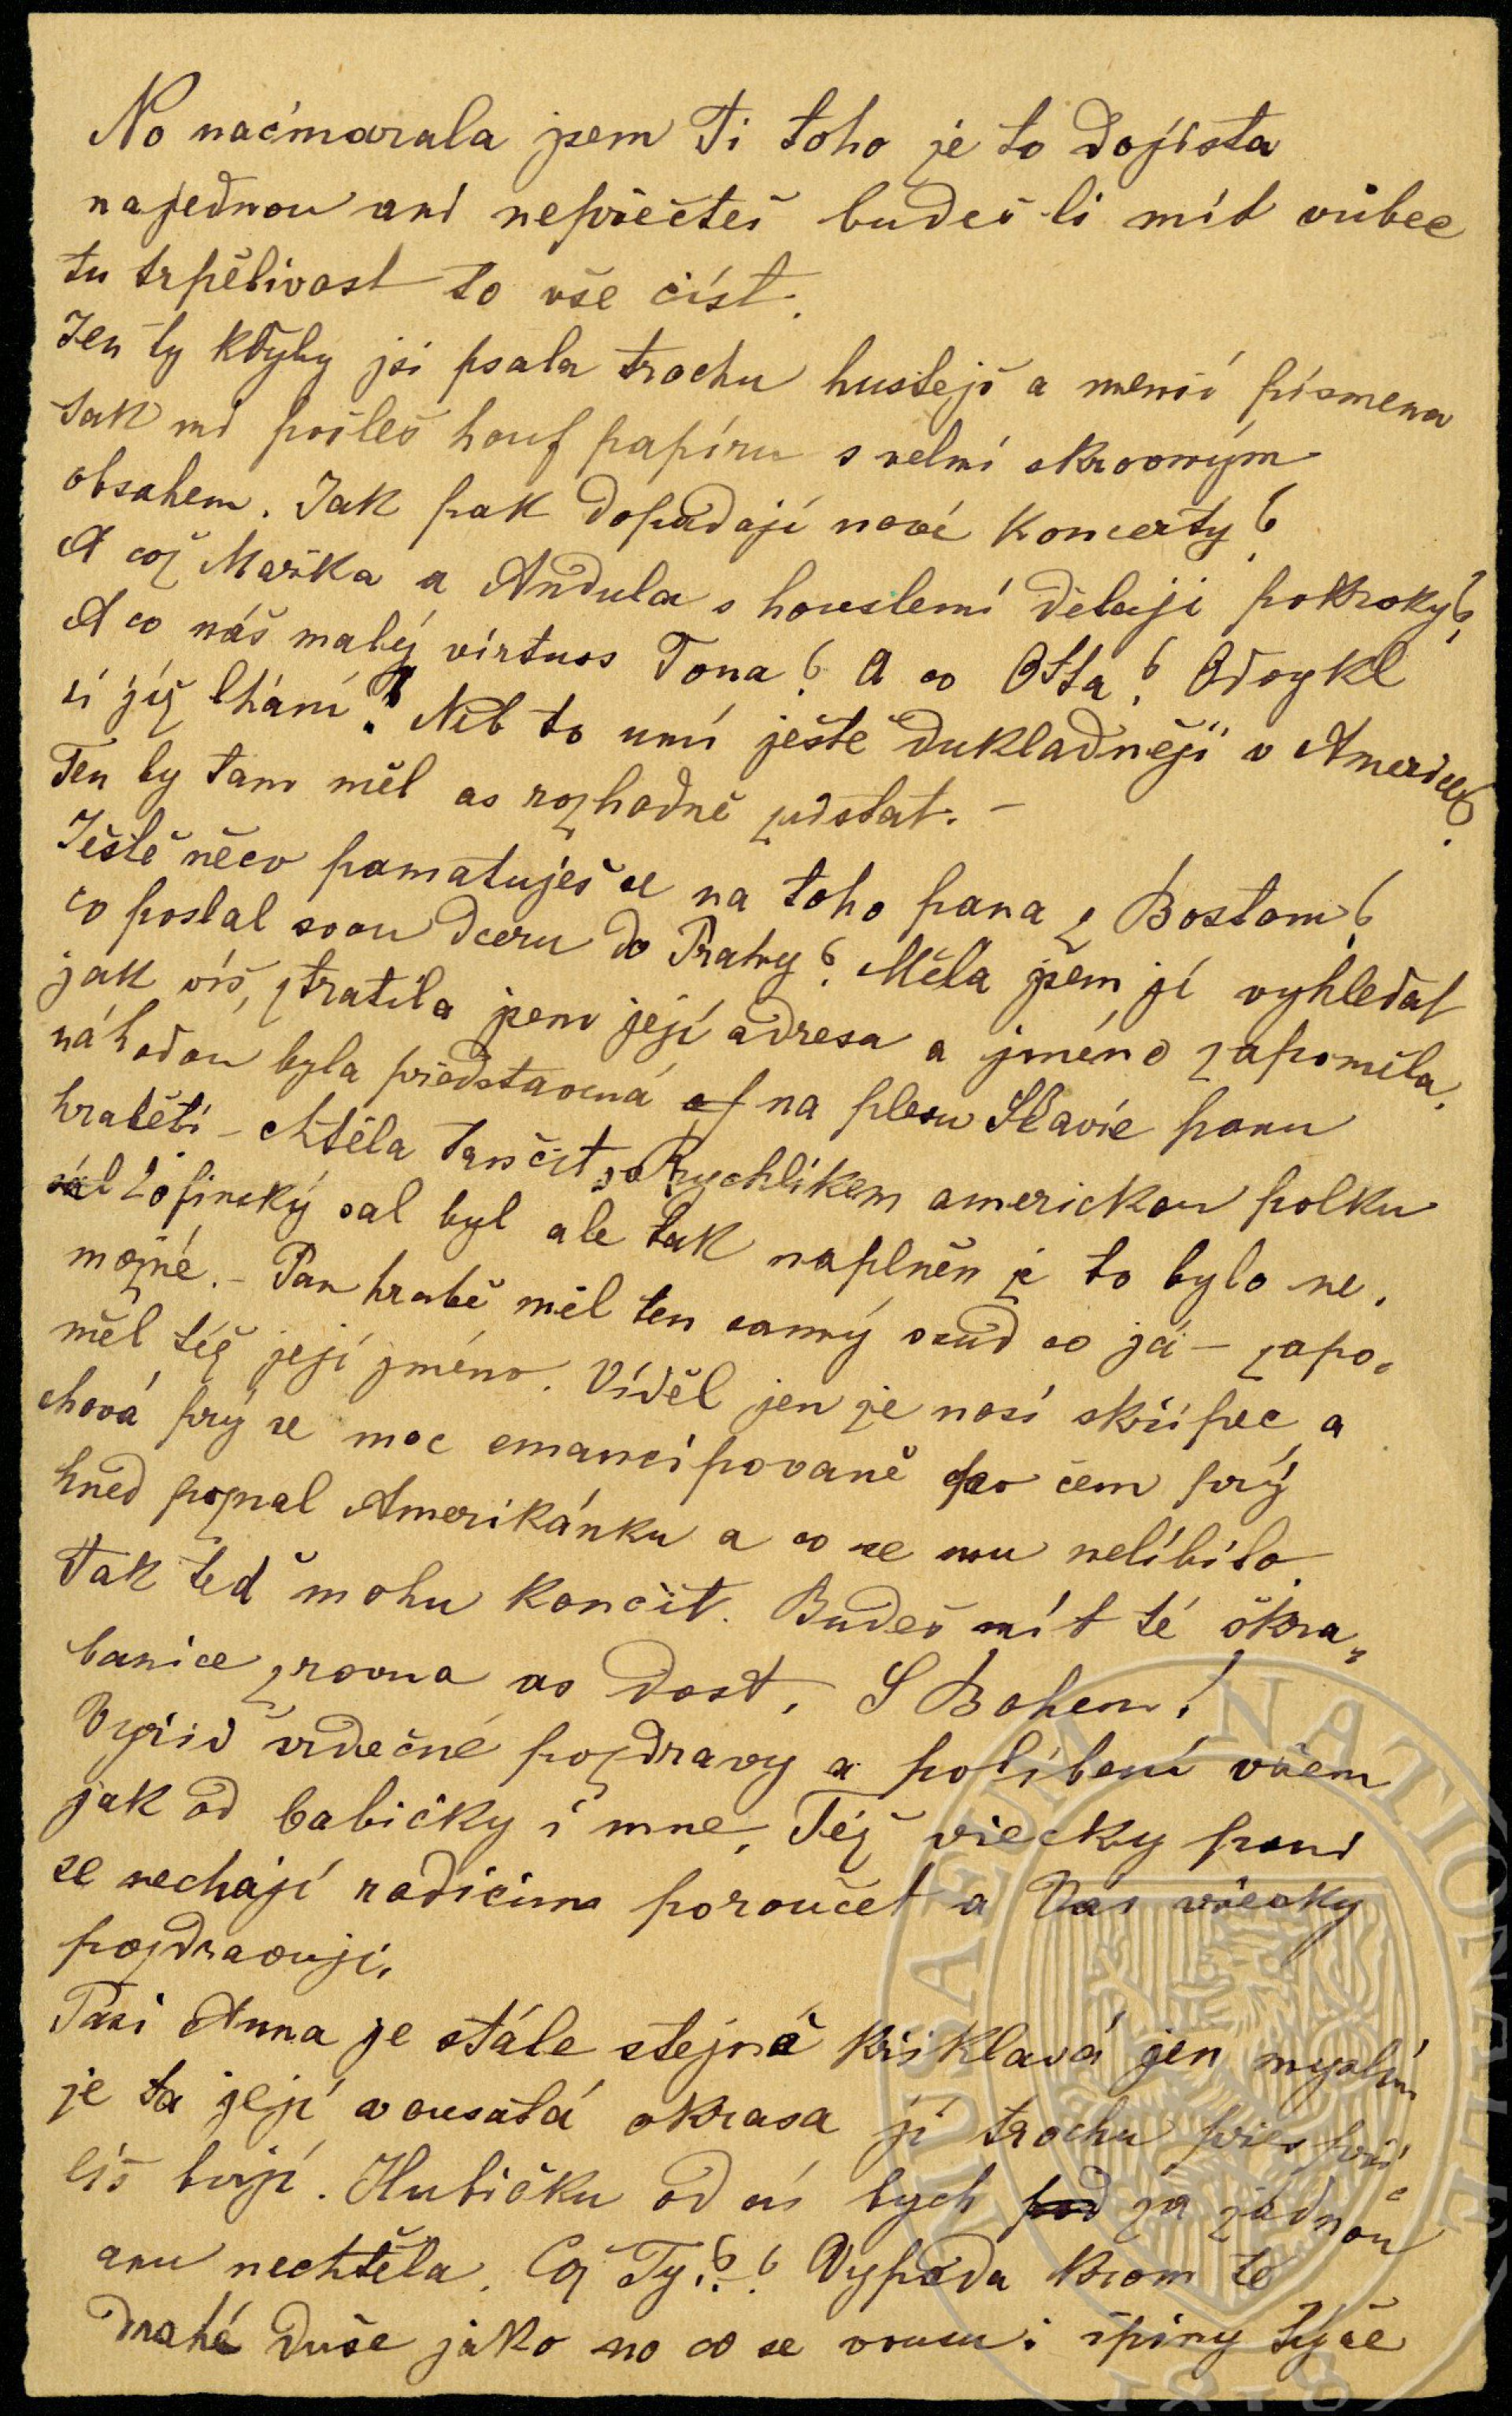 No načmarala jsem Ti toho je to dojista
najednou ani nepřečteš budeš li mít vůbec
tu trpělivost to vše číst.
Jen ty kdyby jsi psala trochu hustejš a menší písmena
tak mi pošleš houf papíru s velmi skrovným
obsahem. Jak pak dopadají nové Koncerty?
A což Mařka a Andula s houslemi dělaji pokroky?
A co náš malý virtuos Tona? A co Otta? Odvykl
si již lhání? Neb to umí ještě dukladnějí v Americe?
Ten by tam měl as rozhodně zustat. –
Ještě něco pamatuješ se na toho pana z Bostonu?
co poslal svou dceru do Prahy? Měla jsem jí vyhledat
jak víš, ztratila jsem její adresa a jméno zapoměla.
náhodou byla představená na plesu Slavie panu
hraběti – chtěla tančit s Rychlíkem americkou polku
Žofinský sal byl ale tak naplněn že to bylo ne.
možné. – Pan hrabě měl ten samý osud co já – zapo,
měl též její jméno. Viděl jen že nosí skřipec a
chová prý se moc emancipovaně po čem prý
hned poznal Amerikánku a co se mu nelíbilo.
Tak teď mohu končit. Budeš mít té škra„
banice zrovna as dost. S Bohem!
Vyřid srdečné pozdravy a políbení všem
jak od babičky i mne, Též všecky paní
se nechají rodičům poroučet a Vas všecky
pozdravuji.
Paní Anna je stále stejně křiklavá jen myslím
je ta její vousatá okrasa jí trochu přes při
líš bují. Hubičku od ní bych pod za žádnou
anu nechtěla. Což Ty?? Vypadá krom té
drahé duše jako no co se vousu i špiny týče
MUSAEUM NATIONALE
1818